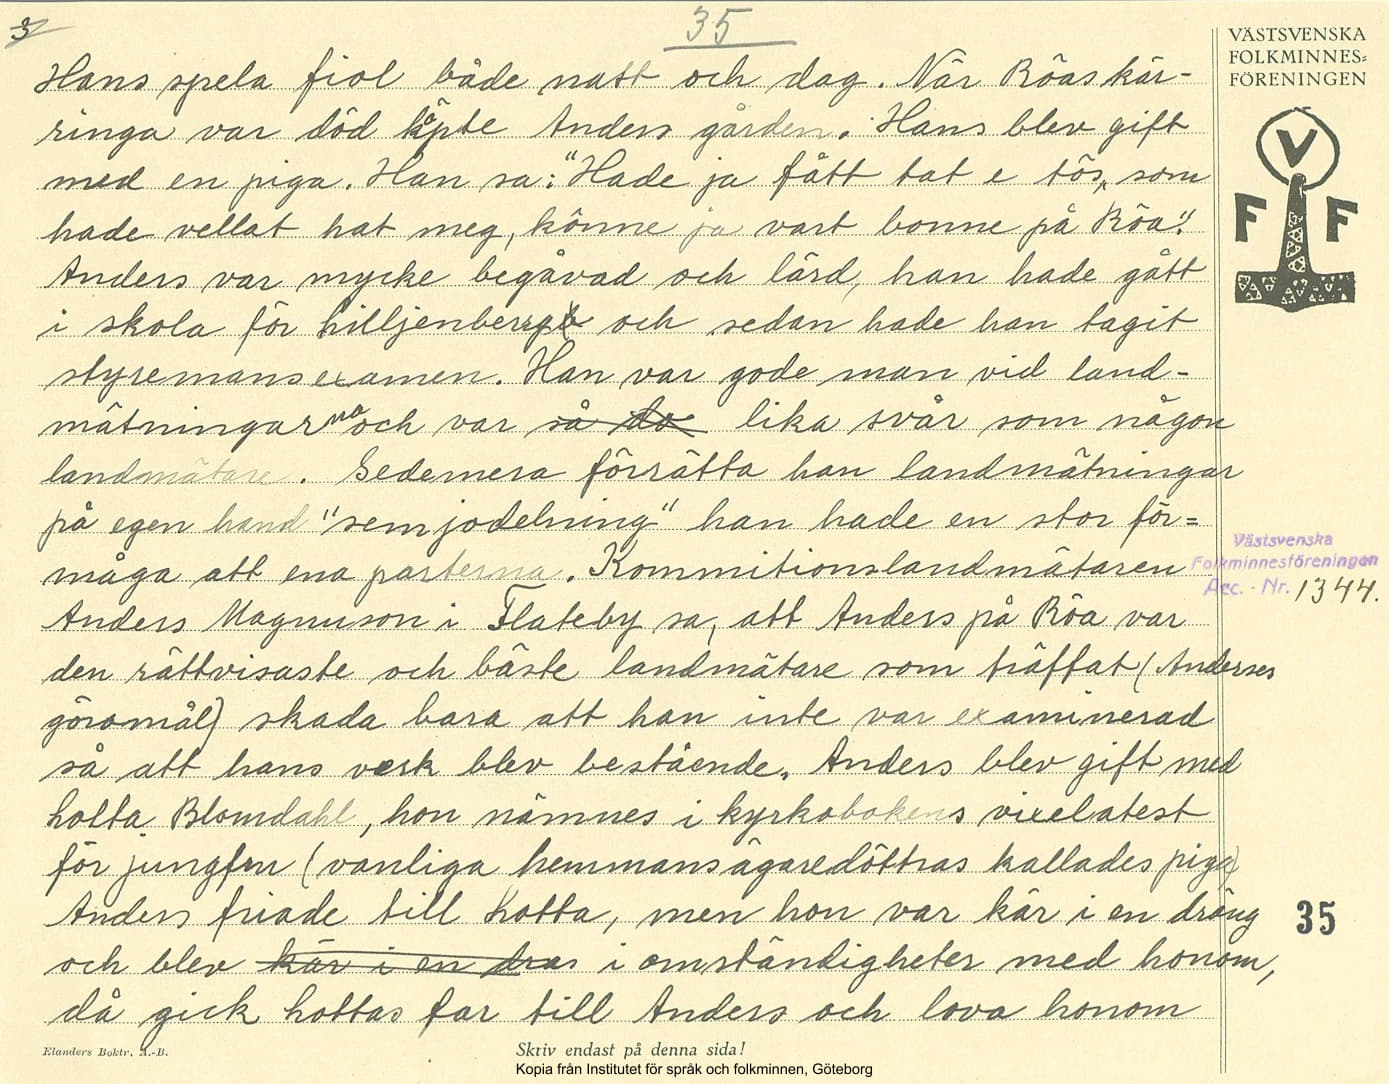 3
35
VÄSTSVENSKA
FOLKMINNES=
FÖRENINGEN
V
F F
Hans spela fiol både natt och dag. När Röaskär-
ringa var död köpte Anders gården. Hans blev gift
med en piga. Han sa: "Hade ja fått tat e tös, som
hade vellat hat meg, könne ja vart bonne på Röa".
Anders var mycke begåvad och lärd, han hade gått
i skola för Lilljenberg och sedan hade han tagit
styremansexamen. Han var gode man vid land-
mätningarna och var så do lika svår som någon
landmätare. Sedemera förrätta han landmätningar
på egen hand "semjodelning" han hade en stor för=
måga att ena parterna. Kommitionslandmätaren
Anders Magnuson i Flateby sa, att Anders på Röa var
den rättvisaste och bäste landmätare som träffat (Anderses
göromål) skada bara att han inte var examinerad
så att hans verk blev bestående. Anders blev gift med
Lotta Blomdahl, hon nämnes i kyrkobokens vixelatest
för jungfru (vanliga hemmansägaredöttras kallades piga)
Anders friade till Lotta, men hon var kär i en dräng
och blev kär i en dras i omständigheter med honom,
då gick Lottas far till Anders och lova honom
Västsvenska
Folkminnesföreningen
Acc. - Nr. 1344.
35
Elanders Boktr. A.-B.
Skriv endast på denna sida!
Kopia från Institutet för språk och folkminnen, Göteborg